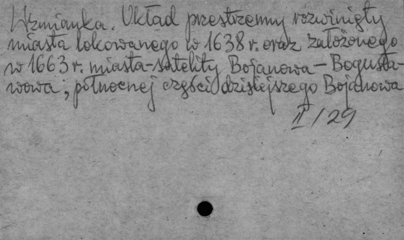 Wzmianka. Układ przestrzenny rozwinięty
miasta lokowanego w 1638 r. oraz założonego
w 1663 r. miasta-satelity Bojanowa – Bogusła-
wowa; północnej części dzisiejszego Bojanowa
II/29